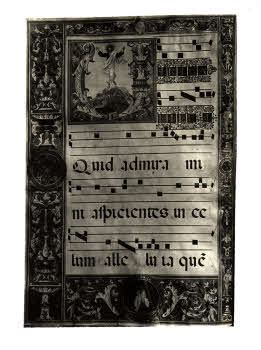 Quid admira mi
ni aspicientes in ce
lum alle lu ia quē